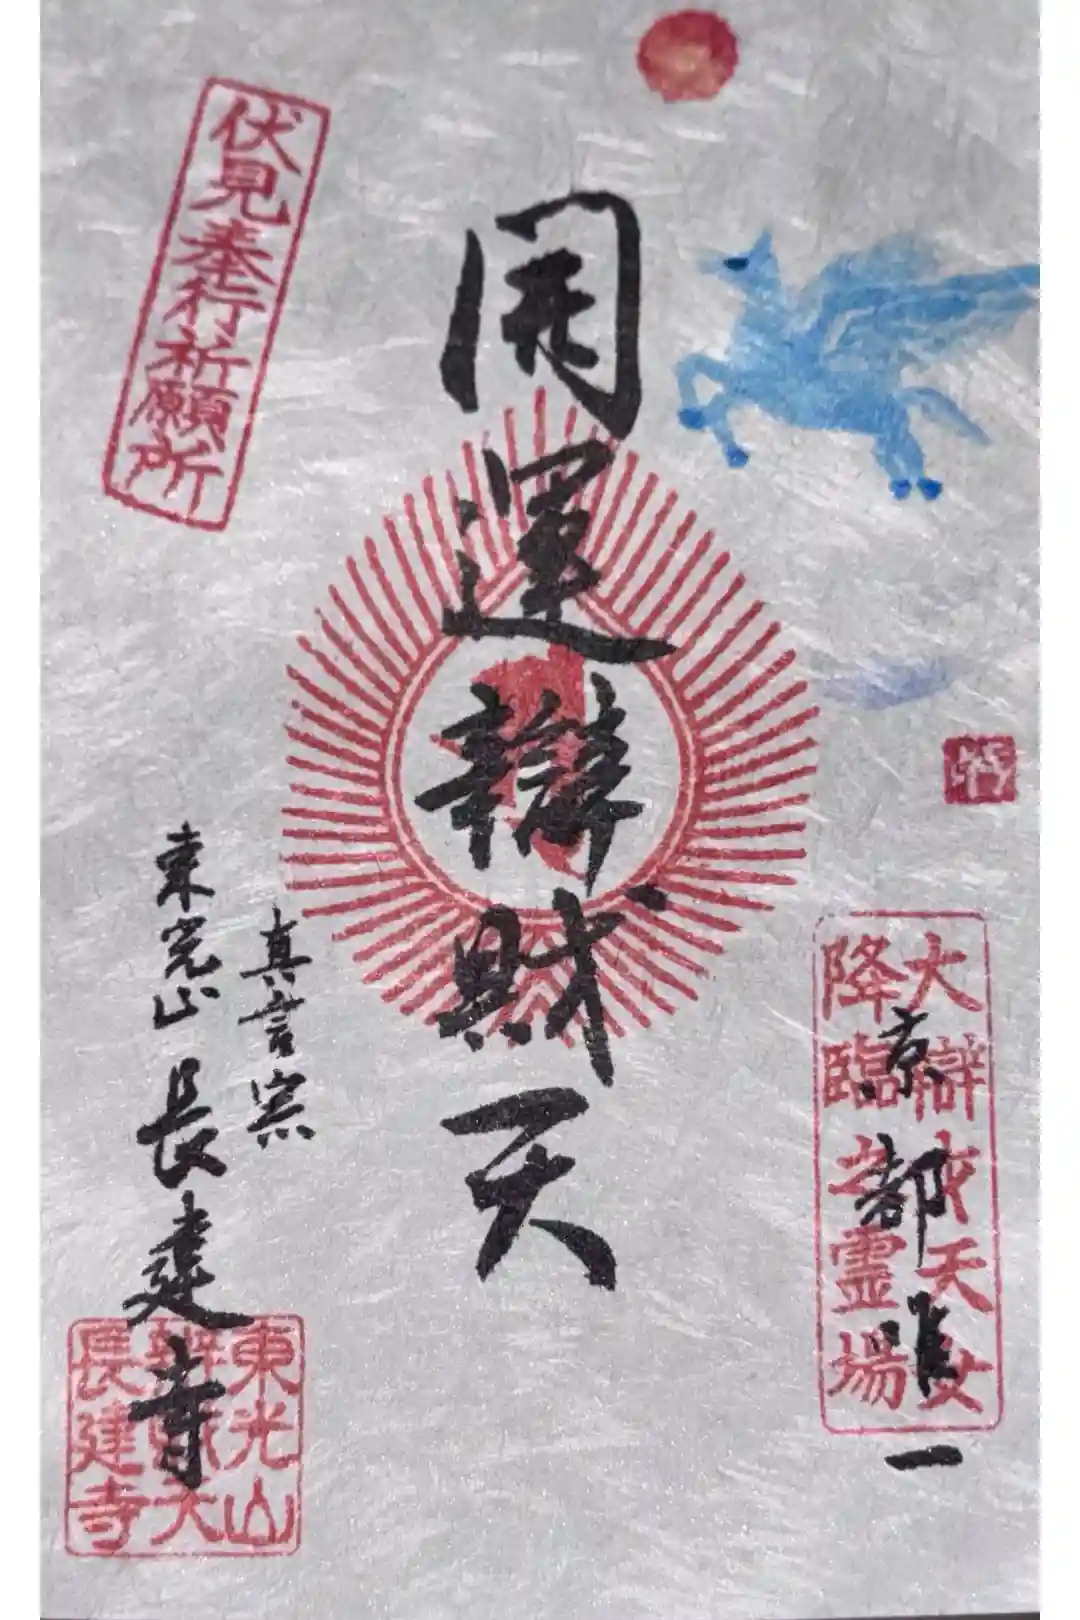 京都唯一
大辯才天女
降臨之霊場
開運辯財天
真言宗
東光山 長建寺
伏見奉行祈願所
東光山
辯財天
長建寺